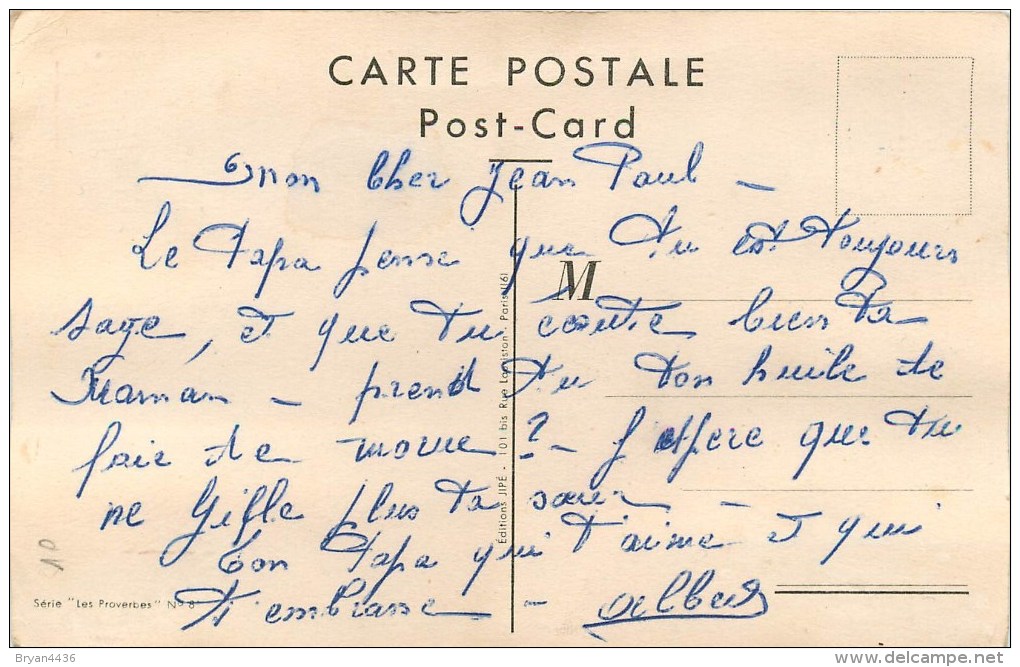 CARTE POSTALE
Post-Card
mon Cher Jean Paul -
Le Papa pense que tu est toujours
M
sage, et que tu écoute bien ta
Maman - prend tu ton huile de
foie de morue ? - J'espere que tu
ne gifle plus ta sœur -
Ton Papa qui t'aime et qui
t'embrasse - Albert
Éditions JIPÉ - 101 bis Rue Lauriston - Paris (16)
Série "Les Proverbes" No 8
10
Bryan4436
delcampe.net